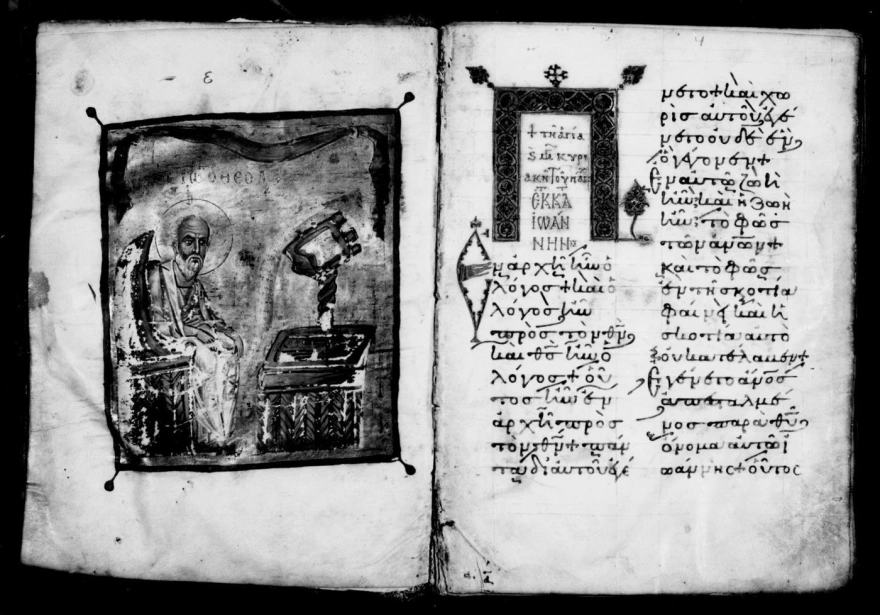 ε
ΙΩ Ο ΘΕΟΛ
+ τῇ ἁγίᾳ
κυρι
ακῇ τοῦ πάσχ
ἐκ κατ
ἰωάν
νην
Ἐν ἀρχῇ ἦν ὁ
λόγος + καὶ ὁ
λόγος ἦν
πρὸς τὸν θν
καὶ θς ἦν ὁ
λόγος + οὗ
τος ἦν ἐν
ἀρχῇ πρὸς
τὸν θν + πάν
τα δι αὐτοῦ ἐγέ
νετο + καὶ χω
ρὶς αὐτοῦ ἐγέ
νετο οὐδὲ ἓν
ὃ γέγονεν +
Ἐν αὐτῷ ζωὴ
ἦν καὶ ἡ ζωὴ
ἦν τὸ φῶς
τῶν ανων +
καὶ τὸ φῶς
ἐν τῇ σκοτίᾳ
φαίνει καὶ ἡ
σκοτία αὐτὸ
οὐ κατέλαβεν +
Ἐγένετο ανος
ἀπεσταλμέ
νος παρὰ θυ
ὄνομα αὐτῷ ἰ
ωάννης + οὗτος